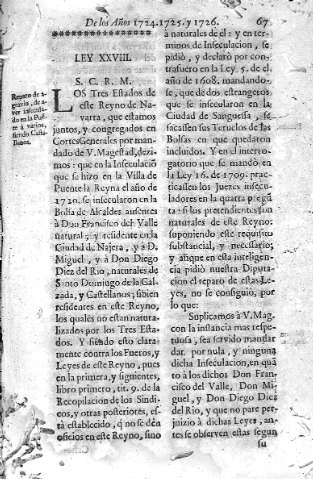 De los Años 1724.1725. y 1726. 67
LEY XXVIII.
Reparo de agravio, de aver inseculado en la Puente à varios, siendo Castellanos.
S. C. R. M.
LOS Tres Estados de
este Reyno de Navarra, que estamos
juntos, y congregados en
Cortes Generales por mandado de V. Magestad, dezimos: que en la Inseculaciõ
que se hizo en la Villa de
Puente la Reyna el año de
1720. se insecularon en la
Bolsa de Alcaldes ausentes
à Don Francisco del Valle
natural, y residente en la
Ciudad de Nagera, y à D.
Miguel, y à Don Diego
Diez del Rio, naturales de
Santo Domingo de la Calzada, y Castellanos; si bien
residentes en este Reyno,
los quales no estan naturalizados por los Tres Estados. Y siendo esto claramente contra los Fueros, y
Leyes de este Reyno, pues
en la primera, y siguientes,
libro primero, tit. 9. de la
Recopilacion de los Sindicos, y otras posteriores, està establecido, q̃ no se dèn
oficios en este Reyno, sino
à naturales de el: y en terminos de Inseculacion, se
pidiò, y declarò por contrafuero en la Ley 5. de el
año de 1608. mandandose, que de dos estrangeros
que se insecularon en la
Ciudad de Sanguesa, se
sacassen sus Teruelos de las
Bolsas en que quedaron
incluidos. Y en el interrogatorio que se mandò en
la Ley 16. de 1709. practicassen los Juezes inseculadores en la quarta pregũta: si los pretendientes son
naturales de este Reyno:
suponiendo este requisito
substancial, y necessario;
y aũque en esta inteligencia pidiò nuestra Diputacion el reparo de estas Leyes, no se consiguiò, por
lo que:
Suplicamos à V. Mag.
con la instancia mas respetuosa, sea servido mandar
dar por nula, y ninguna
dicha Inseculacion, en quãto à los dichos Don Francisco del Valle, Don Miguel, y Don Diego Diez
del Rio, y que no pare perjuizio à dichas Leyes, antes se observen estas segun
su